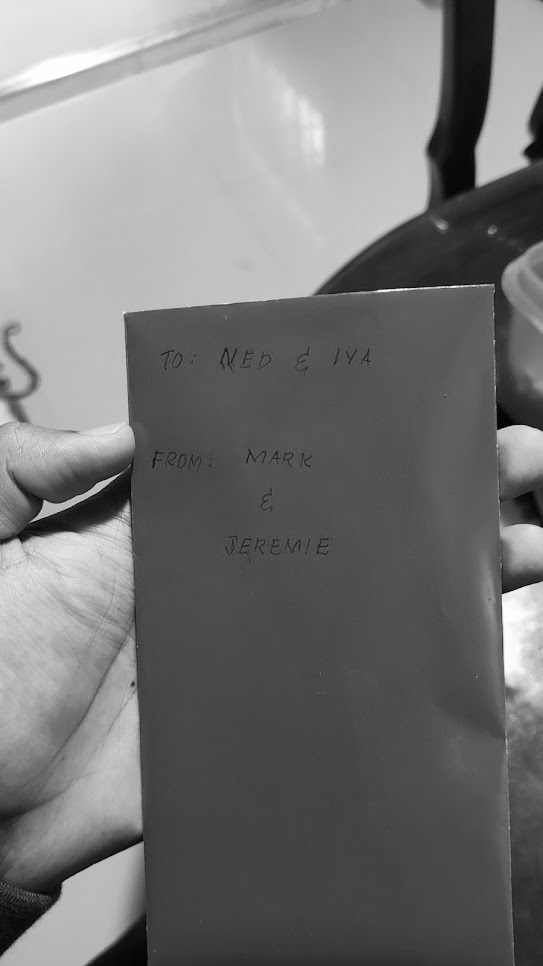 TO: NED & IYA
FROM: MARK
&
JEREMIE